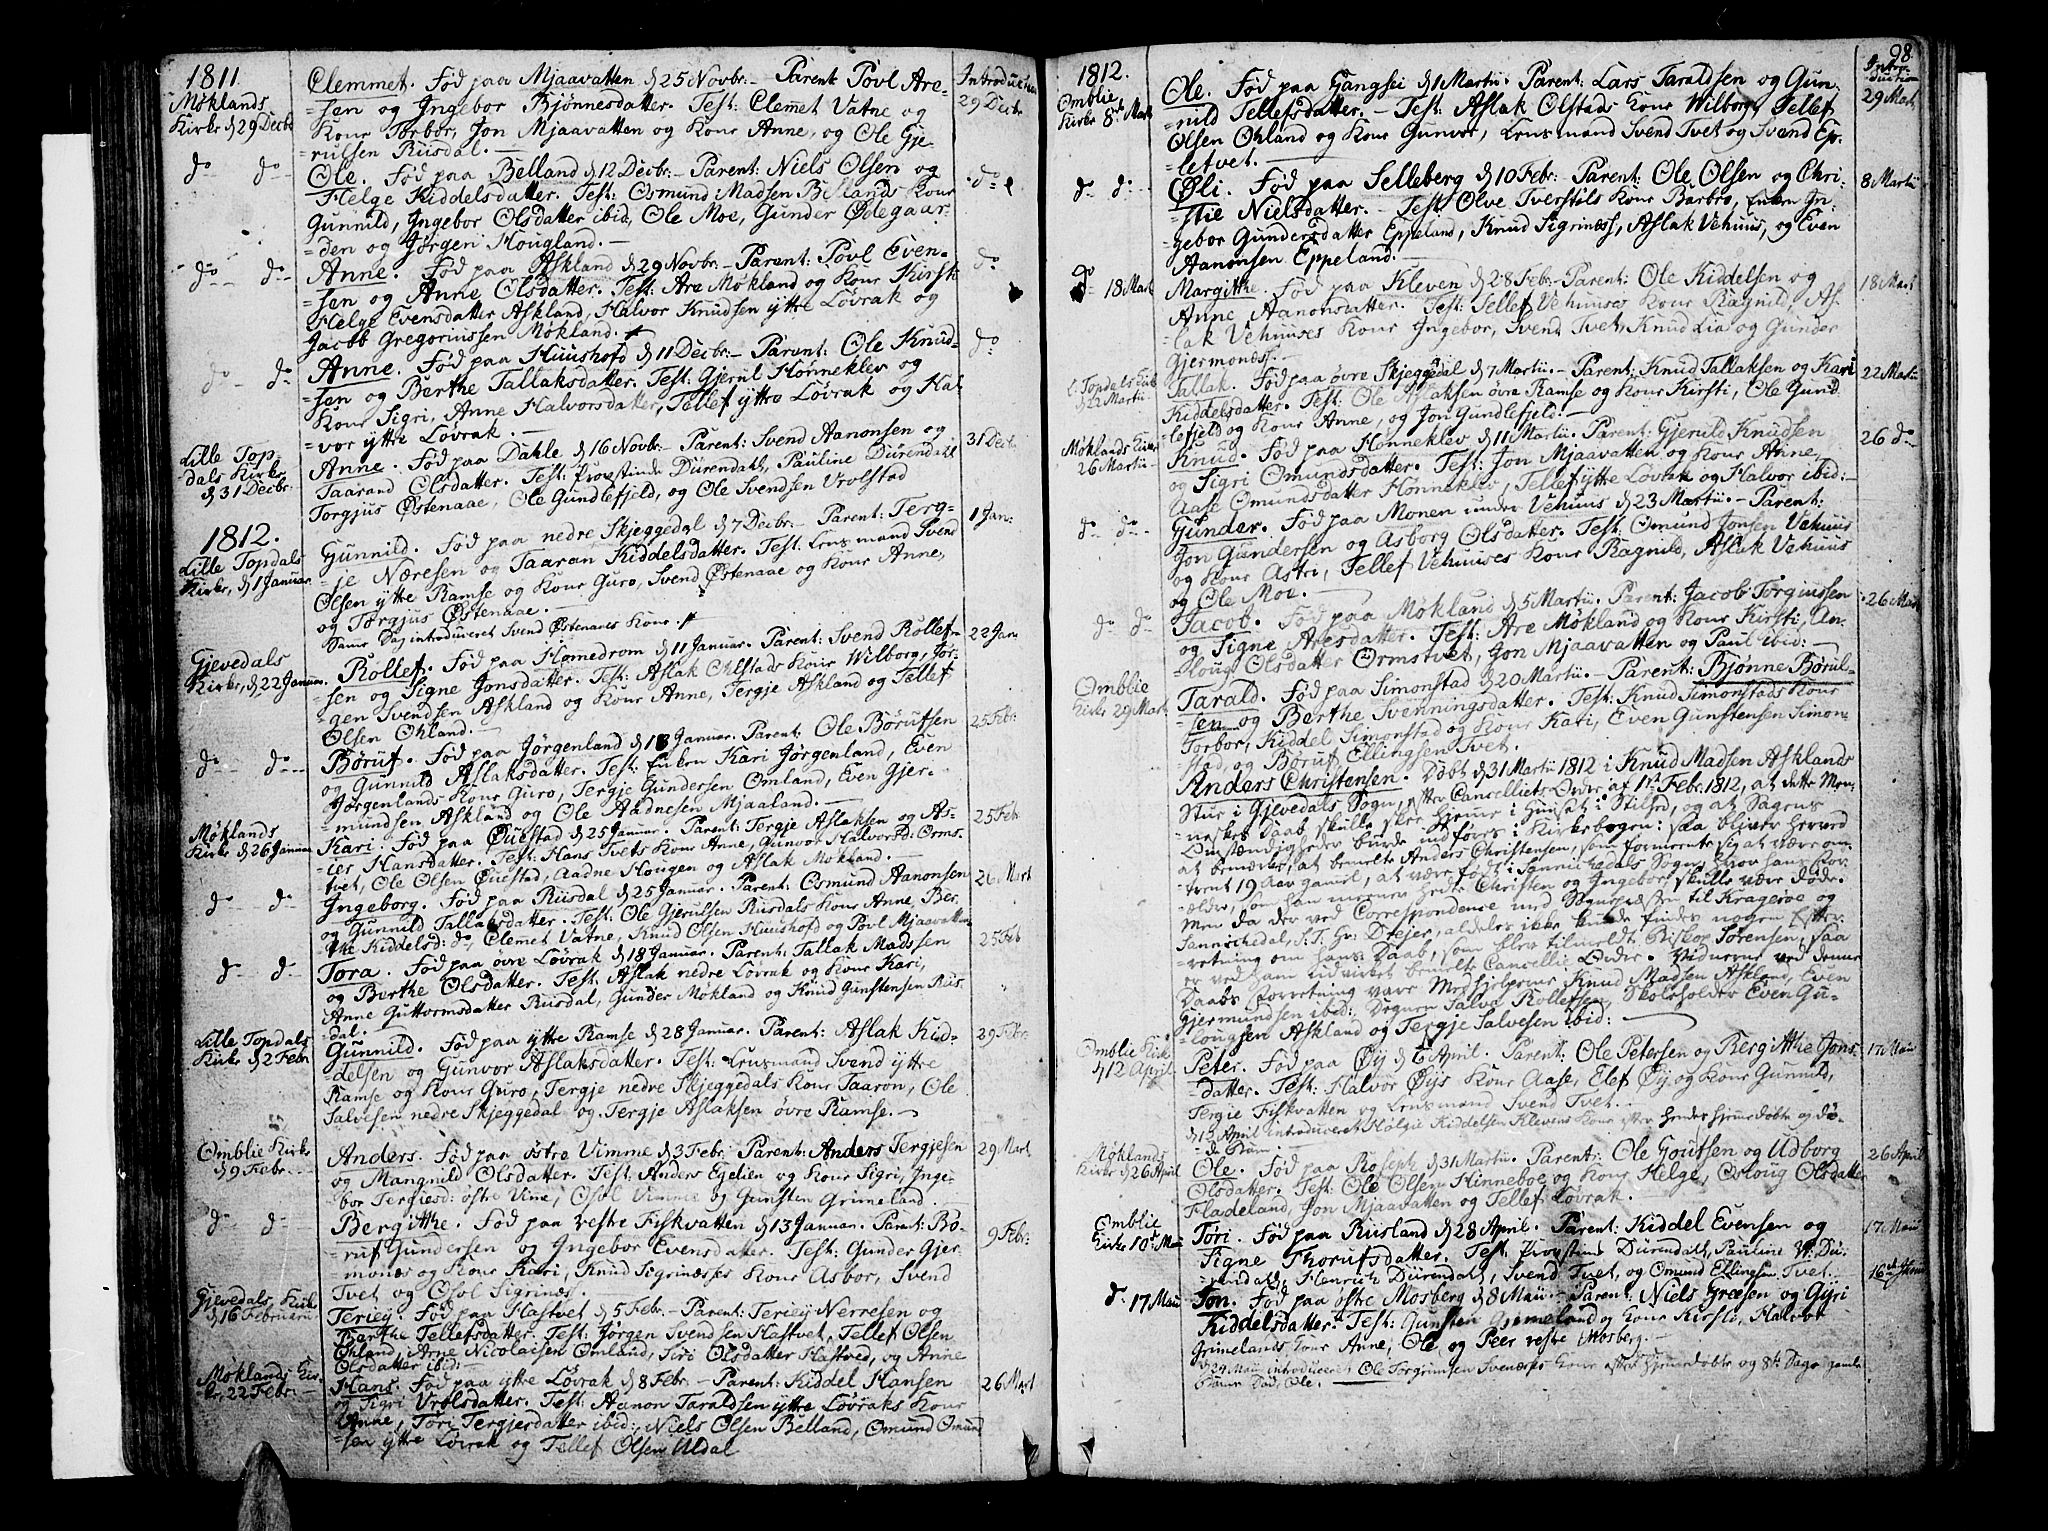 1811.
Møklands
Kirke d 29 Decbr
Clemmet. Fød paa Mjaavatten d 25 Novbr: - Parent: Povl Are-
=sen og Ingebor Bjønnesdatter. Test: Clemet Vatne og
Kone Torbor, Jon Mjaavatten og Kone Anne, og Ole Gje-
rulsen Riisdal. -
Introduction
29 Decbr
do do
Ole. Fød paa Belland d 12 Decbr: - Parent: Niels Olsen og
Helge Kiddelsdatter. Test: Osmund Madsen Bellands Kone
Gunnild, Ingebor Olsdatter ibid, Ole Moe, Gunder Ødegaar-
=den og Jørgen Hougland. -
do
do do
Anne. Fød paa Askland d 29 Novbr: - Parent: Povl Even-
=sen og Anne Olsdatter. Test: Are Møkland og Kone Kirsti
Helge Evensdatter Askland, Halvor Knudsen ytre Løvrak og
Jacob Gregoriussen Møkland.
do
do do
Anne. Fød paa Huushofd d 11 Decbr: - Parent: Ole Knud-
=sen og Berthe Tallaksdatter. Test: Gjerul Hønneklev og
Kone Sigri, Anne Halvorsdatter, Tellef ytre Løvrak og Hal-
=vor ytre Løvrak. -
do
Lille Top-
dals Kirke
d 31 Decbr:
Anne. Fød paa Dahle d 16 Novbr: - Parent: Svend Aanonsen og
Taarand Olsdatter. Test: Provstinde Dürendahl, Pauline Dürendahl
Torgjus Østenaae, Ole Gundlefjeld, og Ole Svendsen Vrolstad
31 Decbr
1812.
Lille Topdals
Kirke, d 1 Januar
Gunnild. Fød paa nedre Skjeggedal d 7 Decbr: - Parent: Terg-
=je Næresen og Taaran Kiddelsdatter. Test: Lensmand Svend
Olsen ytre Ramse og Kone Guro, Svend Østenaae og Kone Anne,
og Torgjus Østenaae. -
Samme Dag introduceret Svend Østenaaes Kone.
1 Jan:
Gjevedals
Kirke, d 22 Januar.
Rollef. Fød paa Homedrom d 11 Januar. Parent: Svend Rollef-
sen og Signe Jonsdatter. Test: Aslak Ohlstads Kone Wilborg, Jør-
=gen Svendsen Askland og Kone Anne, Tergje Askland og Tellef
Olsen Ohland. -
22 Jan
do do
Børuf. Fød paa Jørgenland d 18 Januar. Parent: Ole Børufsen
og Gunnild Aslaksdatter. Test: Enken Kari Jørgenland, Even
Jørgenlands Kone Guro, Tergje Gundersen Omland, Even Gjer-
mundsen Askland og Ole Aadnesen Mjaaland. -
25 Febr:
Møklands
Kirke d 26 Januar
Kari. Fød paa Øuestad d 25 Januar. Parent: Tergje Aslaksen og As-
=ier Hansdatter. Test: Hans Tvets Kone Anne, Gunvor Halvorsd: Orms-
tvet, Ole Olsen Øuestad, Aadne Hougen og Aslak Møkland. -
25 Febr
do do
Ingeborg. Fød paa Riisdal d 25 Januar. Parent: Osmund Aanonsen
og Gunnild Tallaksdatter. Test: Ole Gjerulsen Riisdals Kone Anne, Ber-
the Kiddelsd: do, Clemet Vatne, Knud Olsen Huushofd og Povl Mjaavatten
26 Mart
do do
Tora. Fød paa øvre Løvrak d 18 Januar. Parent: Tallak Madssen
og Berthe Olsdatter. Test: Aslak nedre Løvrak og Kone Kari,
Anne Guttormsdatter Riisdal, Gunder Møkland og Knud Gunstensen Riis-
dal.
25 Feb
Lille Topdals
Kirke, d 2 Febr
Gunnild. Fød paa ytre Ramse d 28 Januar. Parent: Aslak Kid-
delsen og Gunvor Aslaksdatter. Test: Lensmand Svend ytre
Ramse og Kone Guro, Tergje nedre Skjeggedals Kone Taaron, Ole
Salvesen nedre Skjeggedal og Tergje Aslaksen øvre Ramse. -
29 Febr:
Omblie Kirke
d 9 Febr:
Anders. Fød paa østre Vimme d 3 Febr: Parent: Anders Tergjesen
og Mangnild Olsdatter. Test: Anders Egelien og Kone Sigri, Inge-
bor Tergiesd: østre Vime, Osol Vimme og Gunsten Grimeland -
29 Mart
do do
Bergitthe. Fød paa vestre Fiskvatten d 13 Januar. Parent: Bø-
ruf Gundersen og Ingebor Evensdatter. Test: Gunder Gjer-
monæs og Kone Kari, Knud Sigrinæses Kone Asbor, Svend
Tvet og Osol Sigrinæs.
9 Febr:
Gjevedals Kirke
d 16 Februarii
Teriey. Fød paa Hastvet d 5 Febr: - Parent: Teriey Nerresen og
Berthe Tellefsdatter. Test: Jørgen Svendsen Hastvet, Tellef Olsen
Ohland, Arne Nicolaisen Omland, Siri Olsdatter Hastved, og Anne
Olsdatter ibid: -
Møklands Kir-
ke, 22 Febr: -
Hans. Fød paa ytre Løvrak d 8 Febr: - Parent: Kiddel Hansen
og Sigri Vrolsdatter. Test: Aanon Taraldsen ytre Løvraks Kone
Anne, Tori Tergjesdatter ibid:, Niels Olsen Belland, Omund Omund-
=sen ytre Løvrak og Tellef Olsen Uldal
26 Mart
98.
1812.
Omblie
Kirke 8de Mart
Ole. Fød paa Gangsei d 1 Martii. Parent: Lars Taraldsen og Gun-
=nild Tellefsdatter. - Test: Aslak Olstads Kone Wilborg, Tellef
Olsen Ohland og Kone Gunvor, Lensmand Svend Tvet og Svend Ep-
letvet. -
Intro-
duction
29 Mart
do do
Øli. Fød paa Selleberg d 10 Febr: Parent: Ole Olsen og Chri-
=stie Nielsdatter. - Test: Olve Tverstøls Kone Barbro, Enken In-
gebor Gundersdatter Eppeland, Knud Sigrinæss, Aslak Vehuus, og Even
Aanonsen Eppeland. -
8 Martii
do 18 Mart
Margitthe. Fød paa Kleven d 28 Febr: - Parent: Ole Kiddelsen og
Anne Aanonsdatter. Test: Tellef Vehuuses Kone Ragnild, As-
lak Vehuuses Kone Ingebor, Svend Tvet, Knud Lia og Gunder
Gjermonæss. -
18 Mart
L. Topdals Kirke
d 22 Martii
Tallak. Fød paa øvre Skjeggedal d 7 Martii. - Parent: Knud Tallaksen og Kari
Kiddelsdatter. Test: Ole Aslaksen øvre Ramse og Kone Kirsti, Ole Gund-
lefjeld og Kone Anne, og Jon Gundlefjeld. -
22 Martii
Møklands Kirke
26 Martii
Knud. Fød paa Hønneklev d 11 Martii. Parent: Gjeruld Knudsen
og Sigri Omundsdatter. Test: Jon Mjaavatten og Kone Anne,
Aase Omundsdatter Hønneklev, Tellef ytre Løvrak og Halvor ibid: -
26 do
do do
Gunder. Fød paa Monen under Vehuus d 23 Martii. - Parent:
Jon Gundersen og Asborg Olsdatter. Test: Omund Jonsen Vehuus
og Kone Astri, Tellef Vehuuses Kone Ragnild, Aslak Vehuus
og Ole Moe. -
do do
Jacob. Fød paa Møkland d 5 Martii. Parent: Jacob Torgiussen
og Signe Aresdatter. Test: Are Møkland og Kone Kirsti, An-
=loug Olsdatter Ormstvet, Jon Mjaavatten og Paul ibid:
26 Mart
Omblie
Kirke 29 Mart
Tarald. Fød paa Simonstad d 20 Martii. - Parent: Bjønne Børul-
sen og Berthe Svenningsdatter. Test: Knud Simonstads Kone
Torbor, Kiddel Simonstad og Kone Kari, Even Gunstensen Simon-
stad, og Børuf Ellingsen Tvet.
Anders Christensen. Døbt d 31 Martii 1812 i Knud Madsen Asklands
Stue i Gjevedals Sogn, efter Cancellie Ordre af 1st Febr: 1812, at dette Men-
=neskes Daab skulle skee hjemme i Huuset i Stilhed, og at Sagens
Omstændigheder burde indføres i Kirkebogen: saa bliver herved
at bemærke, at bemelte Anders Christensen, som formeente sig at være om-
trent 19 Aar gammel, at være født i Sannichedals Sogn, hvor hans For-
ældre, som han mener hedte Christen og Ingebor, skulle være døde.
Men da der ved Correspondence med Sognepræsten til Kragerøe og
Sannichedal, S. T. Hr: Drejer, aldeles ikke kunde findes nogen Efter-
=retning om hans Daab, som blev tilmeldt Biskop Sørensen, saa
er ved ham udvirket bemelte Cancellie Ordre. Vidnerne ved denne
Daabs Forretning vare Medhjelperne Knud Madsen Askland, Even
Gjermundsen ibid: Degnen Salve Rollefsen, Skoleholder Even Gu-
=lougsen Askland og Tergje Salvesen ibid:
Omblie Kirke
d 12 April
Peter. Fød paa Øy d 6 April. Parent: Ole Petersen og Bergitthe Jons-
datter. Test: Halvor Øys Kone Aase, Elef Øy og Kone Gunnild,
Tergie Fiskvatten og Lensmand Svend Tvet. -
d 13 April introduceret Helgie Kiddelsen Klevens Kone efter hendes hjemmedøbte og dø-
de Barn.
17 Maii
Møklands
Kirke d 26 April
Ole. Fød paa Roseph d 31 Martii. Parent: Ole Goutsen og Udborg
Olsdatter. Test: Ole Olsen Hinneboe og Kone Helge, Osloug Olsdatter
Fladeland, Jon Mjaavatten og Tellef Løvrak.
26 April
Omblie
Kirke 10de Maii
Tori. Fød paa Riisland d 28 April. Parent: Kiddel Evensen og
Signe Thorufsdatter. Test: Provstinde Dürendahl, Pauline W: Dü-
rendahl, Henrich Dürendahl, Svend Tvet, og Omund Ellingsen Tvet.
17 Maii
do 17 Maii
Jon. Fød paa østre Mosberg d 8 Maii. - Parent: Niels Græsen og Gyri
Kiddelsdatter. Test: Gunsten Grimeland og Kone Kirsti, Halvor
Grimelands Kone Anne, Ole og Peer vestre Mosberg. -
d 29 Maii introduceret Ole Torgrimsen Svenæses Kone efter hjemmedøbte og 8te Dage gamle
Barn Død, Ole.
16de